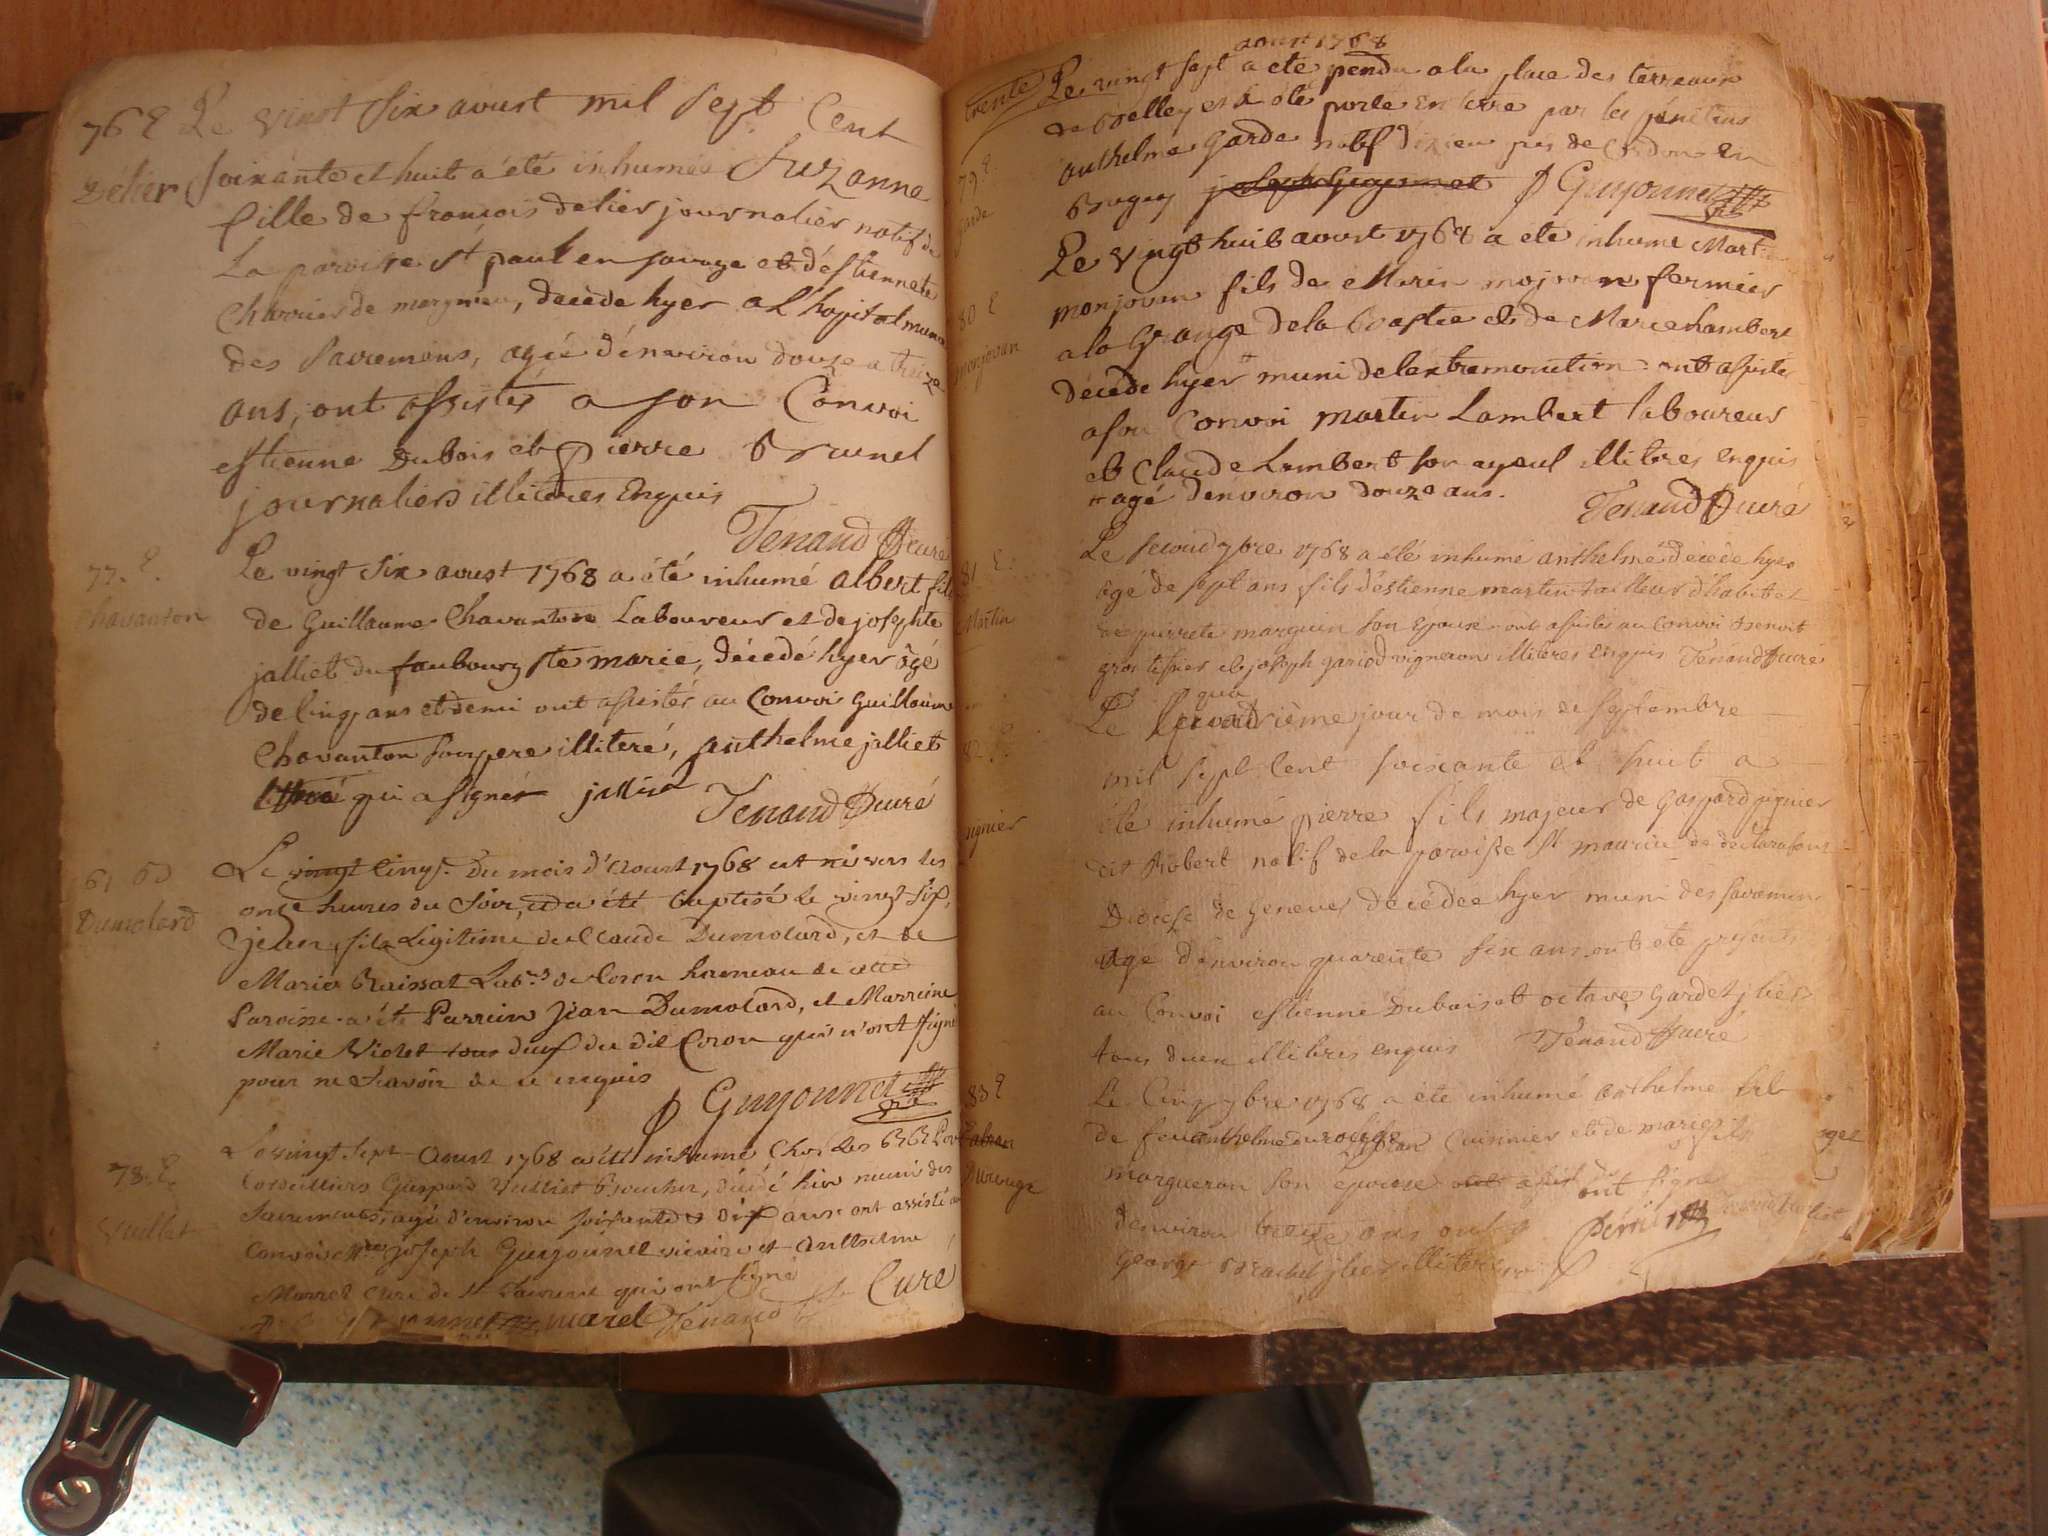 76 E Le vint six avust mil sept Cent
Délier soixante et huit a été inhumée Suzanne
fille de françois delier journalier natif de
La paroisse st paul en savoye et d'éstiennete
Charrier de , decéde hyer a L'hopital munie
des Sacremens, agée d'énviron douze a treize
ans, ont assistés a son Convoi
estienne Dubois et pierre Brunel
journaliers illiteres Enquis
Tenand Curé
77. E. Le vingt six avust 1768 a été inhumé albert fils
Chavanton de Guillaume Chavanton Laboureur et de josephte
jalliet du faubourg ste marie, décedé hyer âgé
de cinq ans et demi ont assistés au Convoi Guillaume
Chavanton son pere illiteré, anthelme jalliet
qui a signé jalliet
Tenand Curé
61 Le vingt cinq Du mois d'Aoust 1768 est né vers les
Dumolard onze heures du Soir, et a été baptisé le vingt six,
jean, fils Legitime de Claude Dumolard, et de
Marie Labrs de Coron hameau de cette
Paroisse a été Parrein Jean Dumolard, et Marreine
Marie Violet tous deux du dit Coron qui n'ont signé
pour ne sçavoir de ce enquis
Guyonnet
78. E. Le vingt sept Aoust 1768 a été inhumé Chés les
Vulliet Cordelliers Gaspard Vulliet Boucher, décédé hier muni des
Sacrements, agé d'environ soixante et dix ans ont assisté au
Convoi joseph Guyonnet vicaire et Anthelme
Marrel Curé de St qui ont signé
marel Tenand Curé
aoust 1768
trente Le vingt sept a été pendu a la place des terreaux
de Belley et a été porté en terre par les pénitens
79. E. anthelme Garde natif d'izieu près de Cordon En
Garde Bugey Guyonnet
Le Vingt huit avust 1768 a été inhumé Martin
80 E monjovan fils de Marin monjovan fermier
a la Grange de la et de Marie Lambert
monjovan décéde hyer muni de l'extremonction ont assistés
a son Convoi martin Lambert laboureur
et Claude Lambert son ayeul illiterés enquis
agé d'énviron douze ans. Tenand Curé
81 E. Le second 7bre 1768 a été inhumé anthelme décéde hyer
agé de sept ans fils d'éstienne martin tailleur d'habit et
Martin de pierrete marguin son Epouse ont assistés au Convoi benoit
gros tissier et joseph gariod vigneron illiteres Enquis Tenand Curé
Le quatrième jour de mois de septembre
82. E. mil sept Cent soixante et huit a
été inhumé pierre fils majeur de Gaspard pignier
pignier dit Robert natif de la paroisse st maurice de
Diocése de Geneve décedée hyer muni des sacremens
age d'énviron quarente six ans ont été présents
au Convoi estienne Dubois et octave Gardet
tous deux illiterés enquis Tenand Curé
83 E Le Cinq 7bre 1768 a été inhumé anthelme fils
de feu anthelme Cuisinier et de marie
margueron son epouse ont signé
d'énviron treize ans
George illiteré